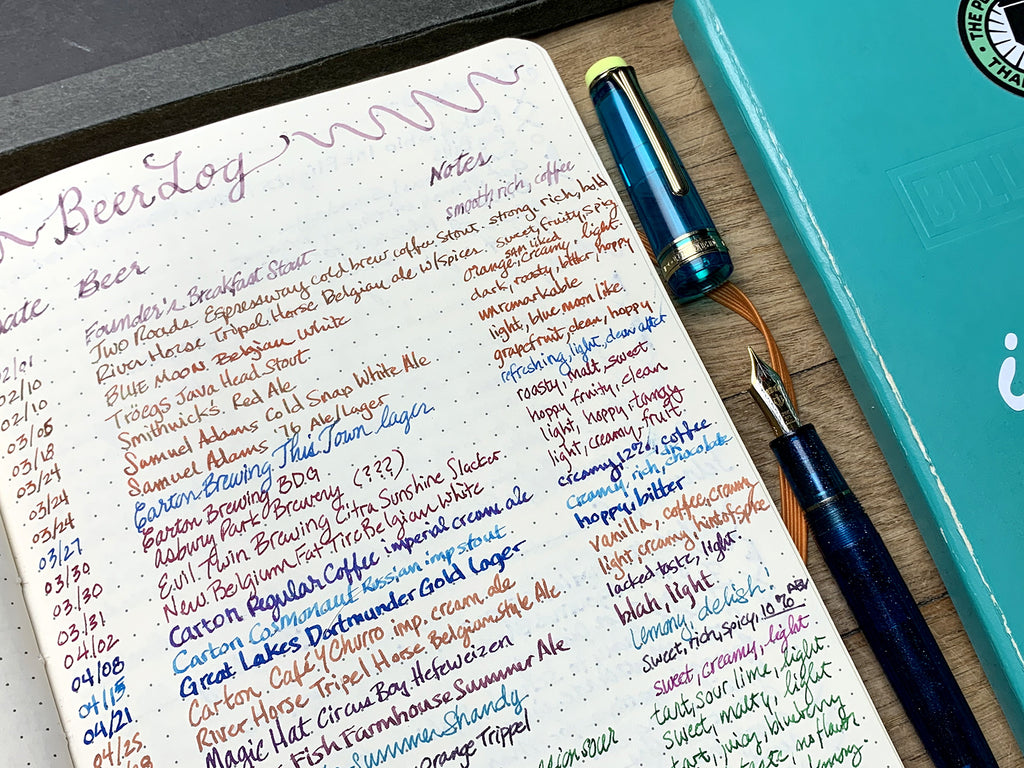 Beer Log
ate Beer Notes
02/01 Founder's Breakfast Stout smooth rich, coffee
02/10 Two Roads Espressway cold brew coffee stout strong, rich, bold
02/10 River Horse Tripel Horse Belgian ale w/spices sweet, fruity, spicy
Sam liked
03/05 BLUE MOON Belgian White orange, creamy, light
03/18 Tröegs Java Head Stout dark, roasty, bitter, hoppy
03/24 Smithwick's Red Ale unremarkable
03/24 Samuel Adams Cold Snap White Ale light, blue moon like
03/24 Samuel Adams '76 Ale/Lager grapefruit, clean, hoppy
03/27 Carton Brewing This Town lager refreshing, light, clean after
03/30 Carton Brewing BDG roasty, malt, sweet
03/30 Asbury Park Brewery (???) hoppy fruity, clean
03/31 Evil Twin Brewing Citra Sunshine Slacker light, hoppy, tangy
04/02 New Belgium Fat Tire Belgian White light, creamy, fruit.
04/08 Carton Regular Coffee imperial cream ale creamy, 12%, coffee
04/15 Carton Cosmonaut Russian imp stout creamy, rich, chocolate
04/21 Great Lakes Dortmunder Gold Lager hoppy, bitter
04/25 Carton Café y Churro imp. cream ale vanilla, coffee, creamy
8 River Horse Tripel Horse Belgian Style Ale light, creamy, hint of spice
Magic Hat Circus Boy Hefeweizen lacked taste, light.
Fish Farmhouse Summer Ale blah, light
Summer Shandy lemony, delish!
Orange Trippel sweet, rich, spicy, 10% ABV
sion sour sweet, creamy, light
tart, sour, lime, light
sweet, malty, light
tart, juicy, blueberry
taste, no flavor
lemony.
THE PE
THA
BULL